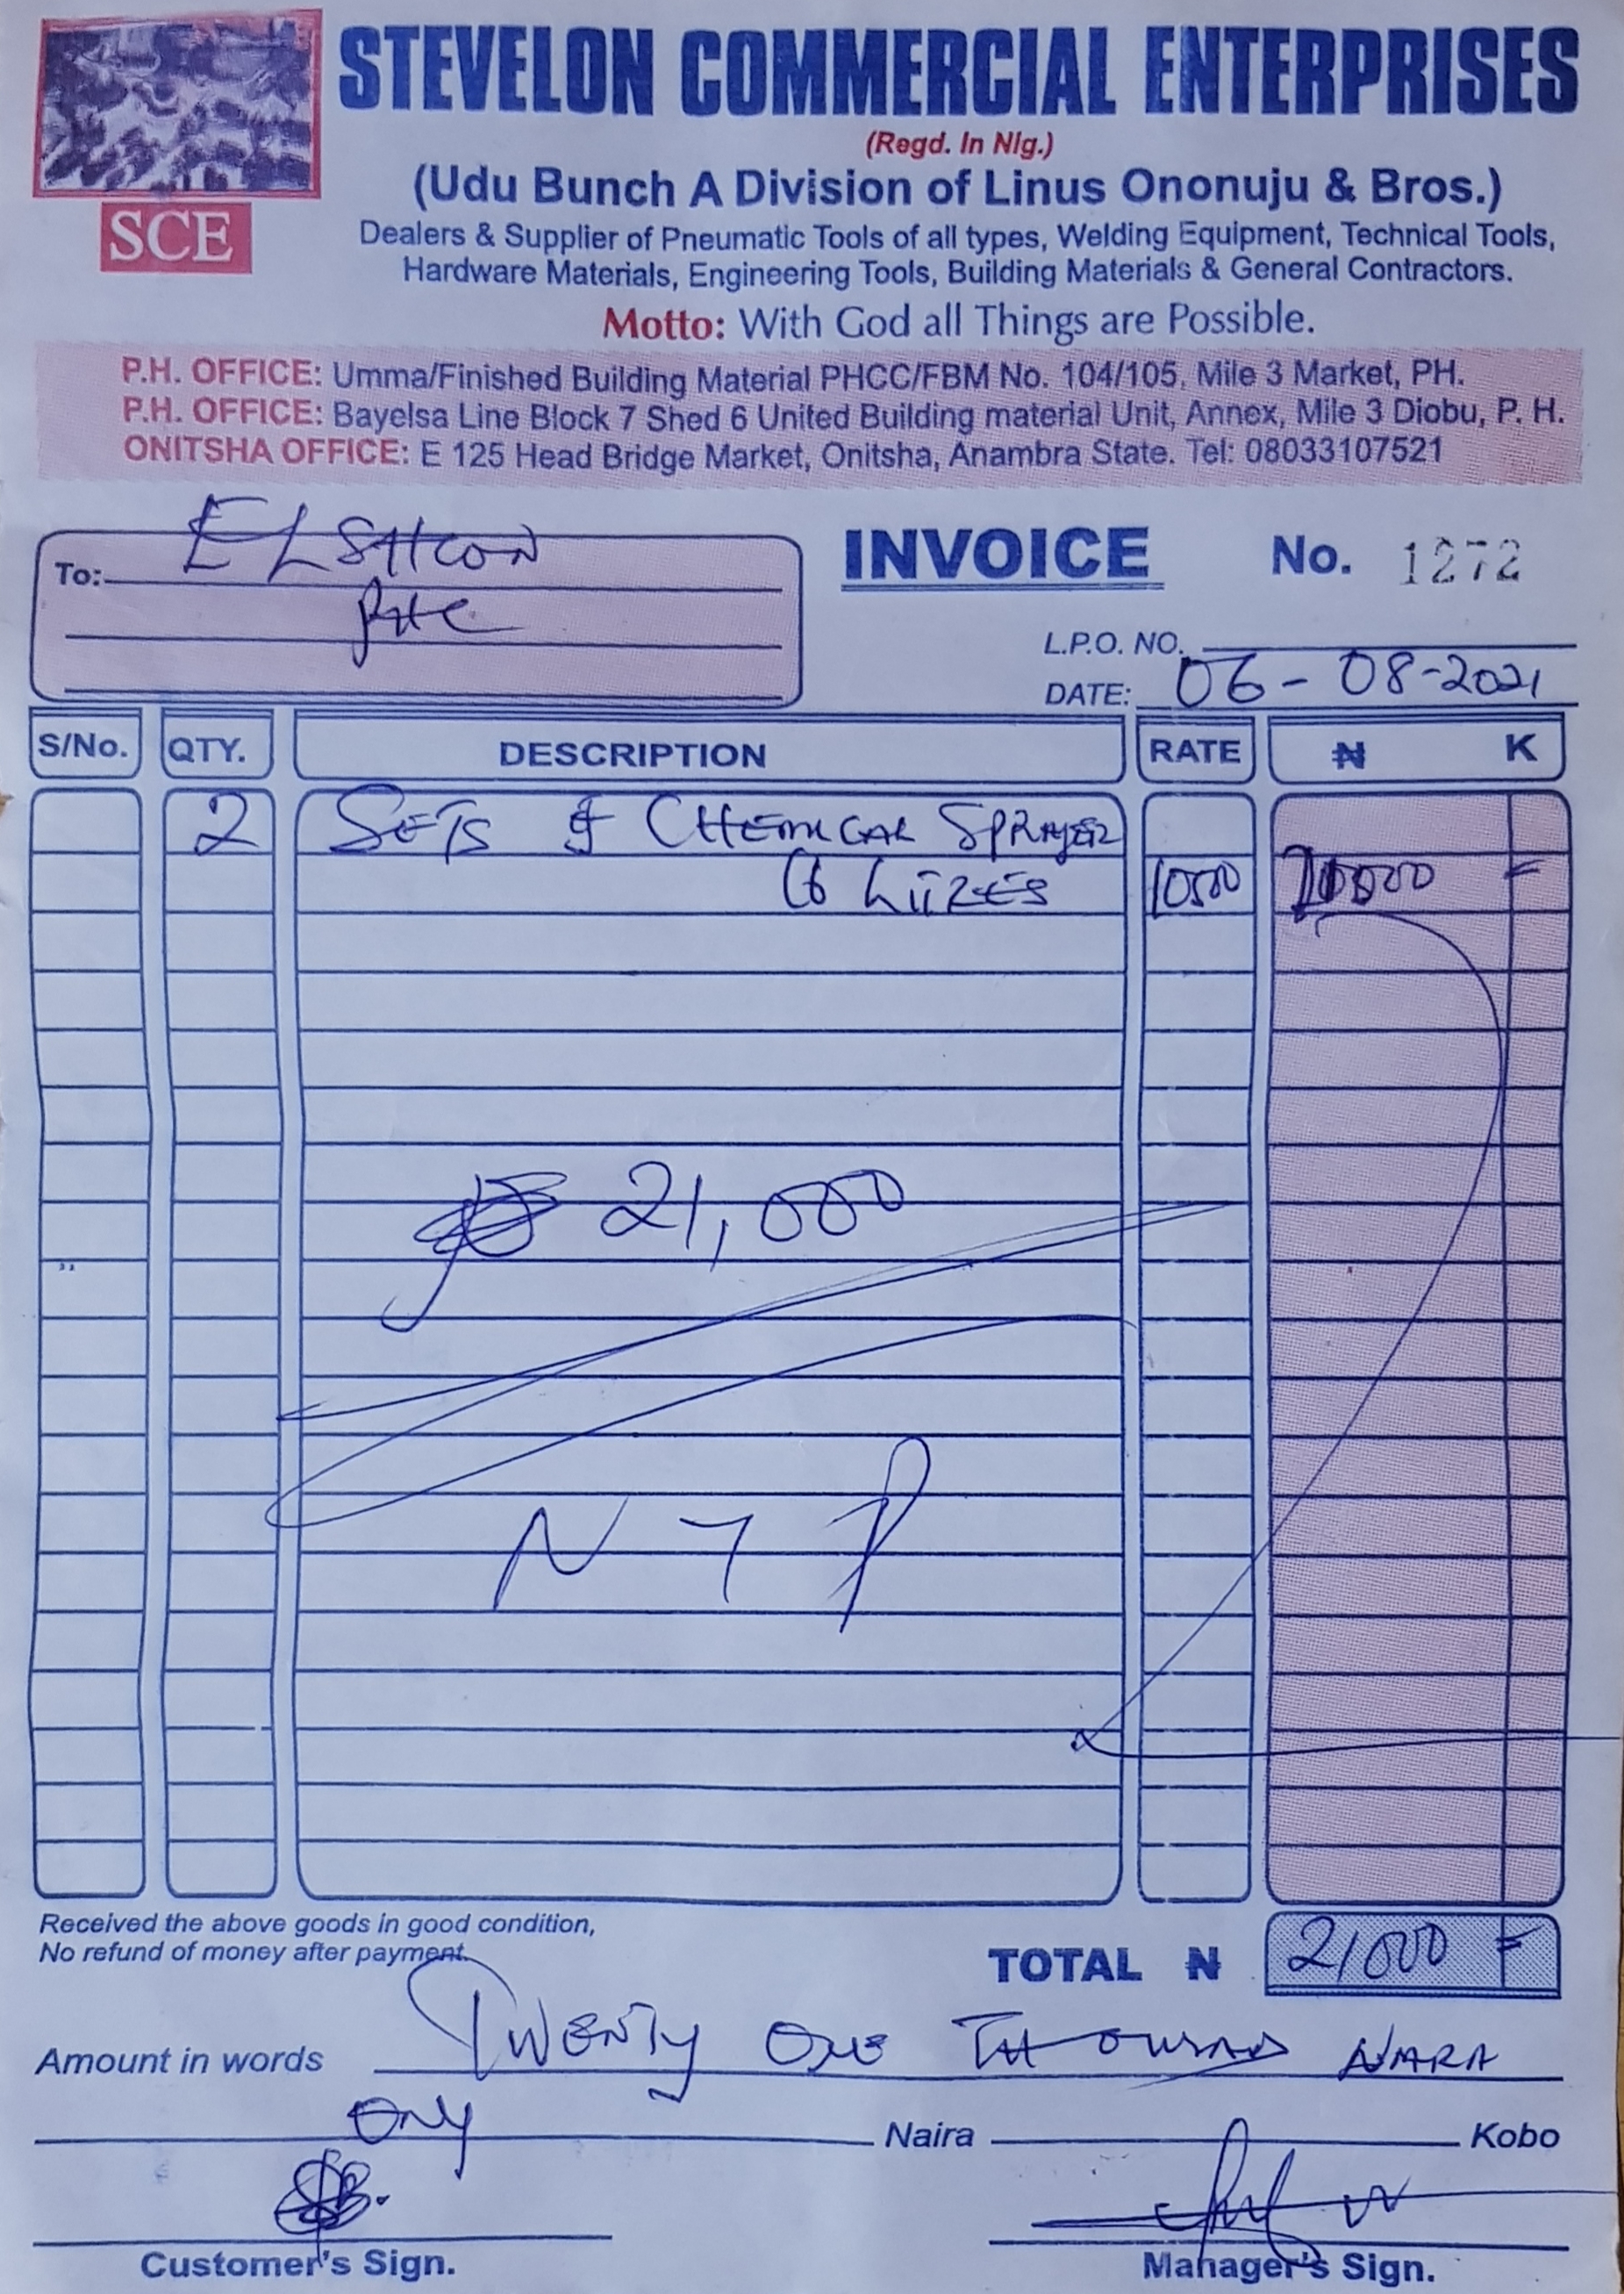 STEVELON COMMERCIAL ENTERPRISES
(Regd. In Nig.)
(Udu Bunch A Division of Linus Ononuju & Bros.)
SCE
Dealers & Supplier of Pneumatic Tools of all types, Welding Equipment, Technical Tools,
Hardware Materials, Engineering Tools, Building Materials & General Contractors.
Motto: With God all Things are Possible.
P.H. OFFICE: Umma/Finished Building Material PHCC/FBM No. 104/105, Mile 3 Market, PH.
P.H. OFFICE: Bayelsa Line Block 7 Shed 6 United Building material Unit, Annex, Mile 3 Diobu, P. H.
ONITSHA OFFICE: E 125 Head Bridge Market, Onitsha, Anambra State. Tel: 08033107521
To: ELSHCON
INVOICE No. 1272
L.P.O. NO.
DATE: 06-08-2021
S/No. QTY. DESCRIPTION RATE ₦ K
2 SETS of CHEMICAL SPRAYER
16 LITRES 10500 =
21,000
Received the above goods in good condition,
No refund of money after payment.
TOTAL ₦ 21000 =
Amount in words TWENTY ONE THOUSAND NARA
ONLY Naira Kobo
Customer's Sign. Manager's Sign.